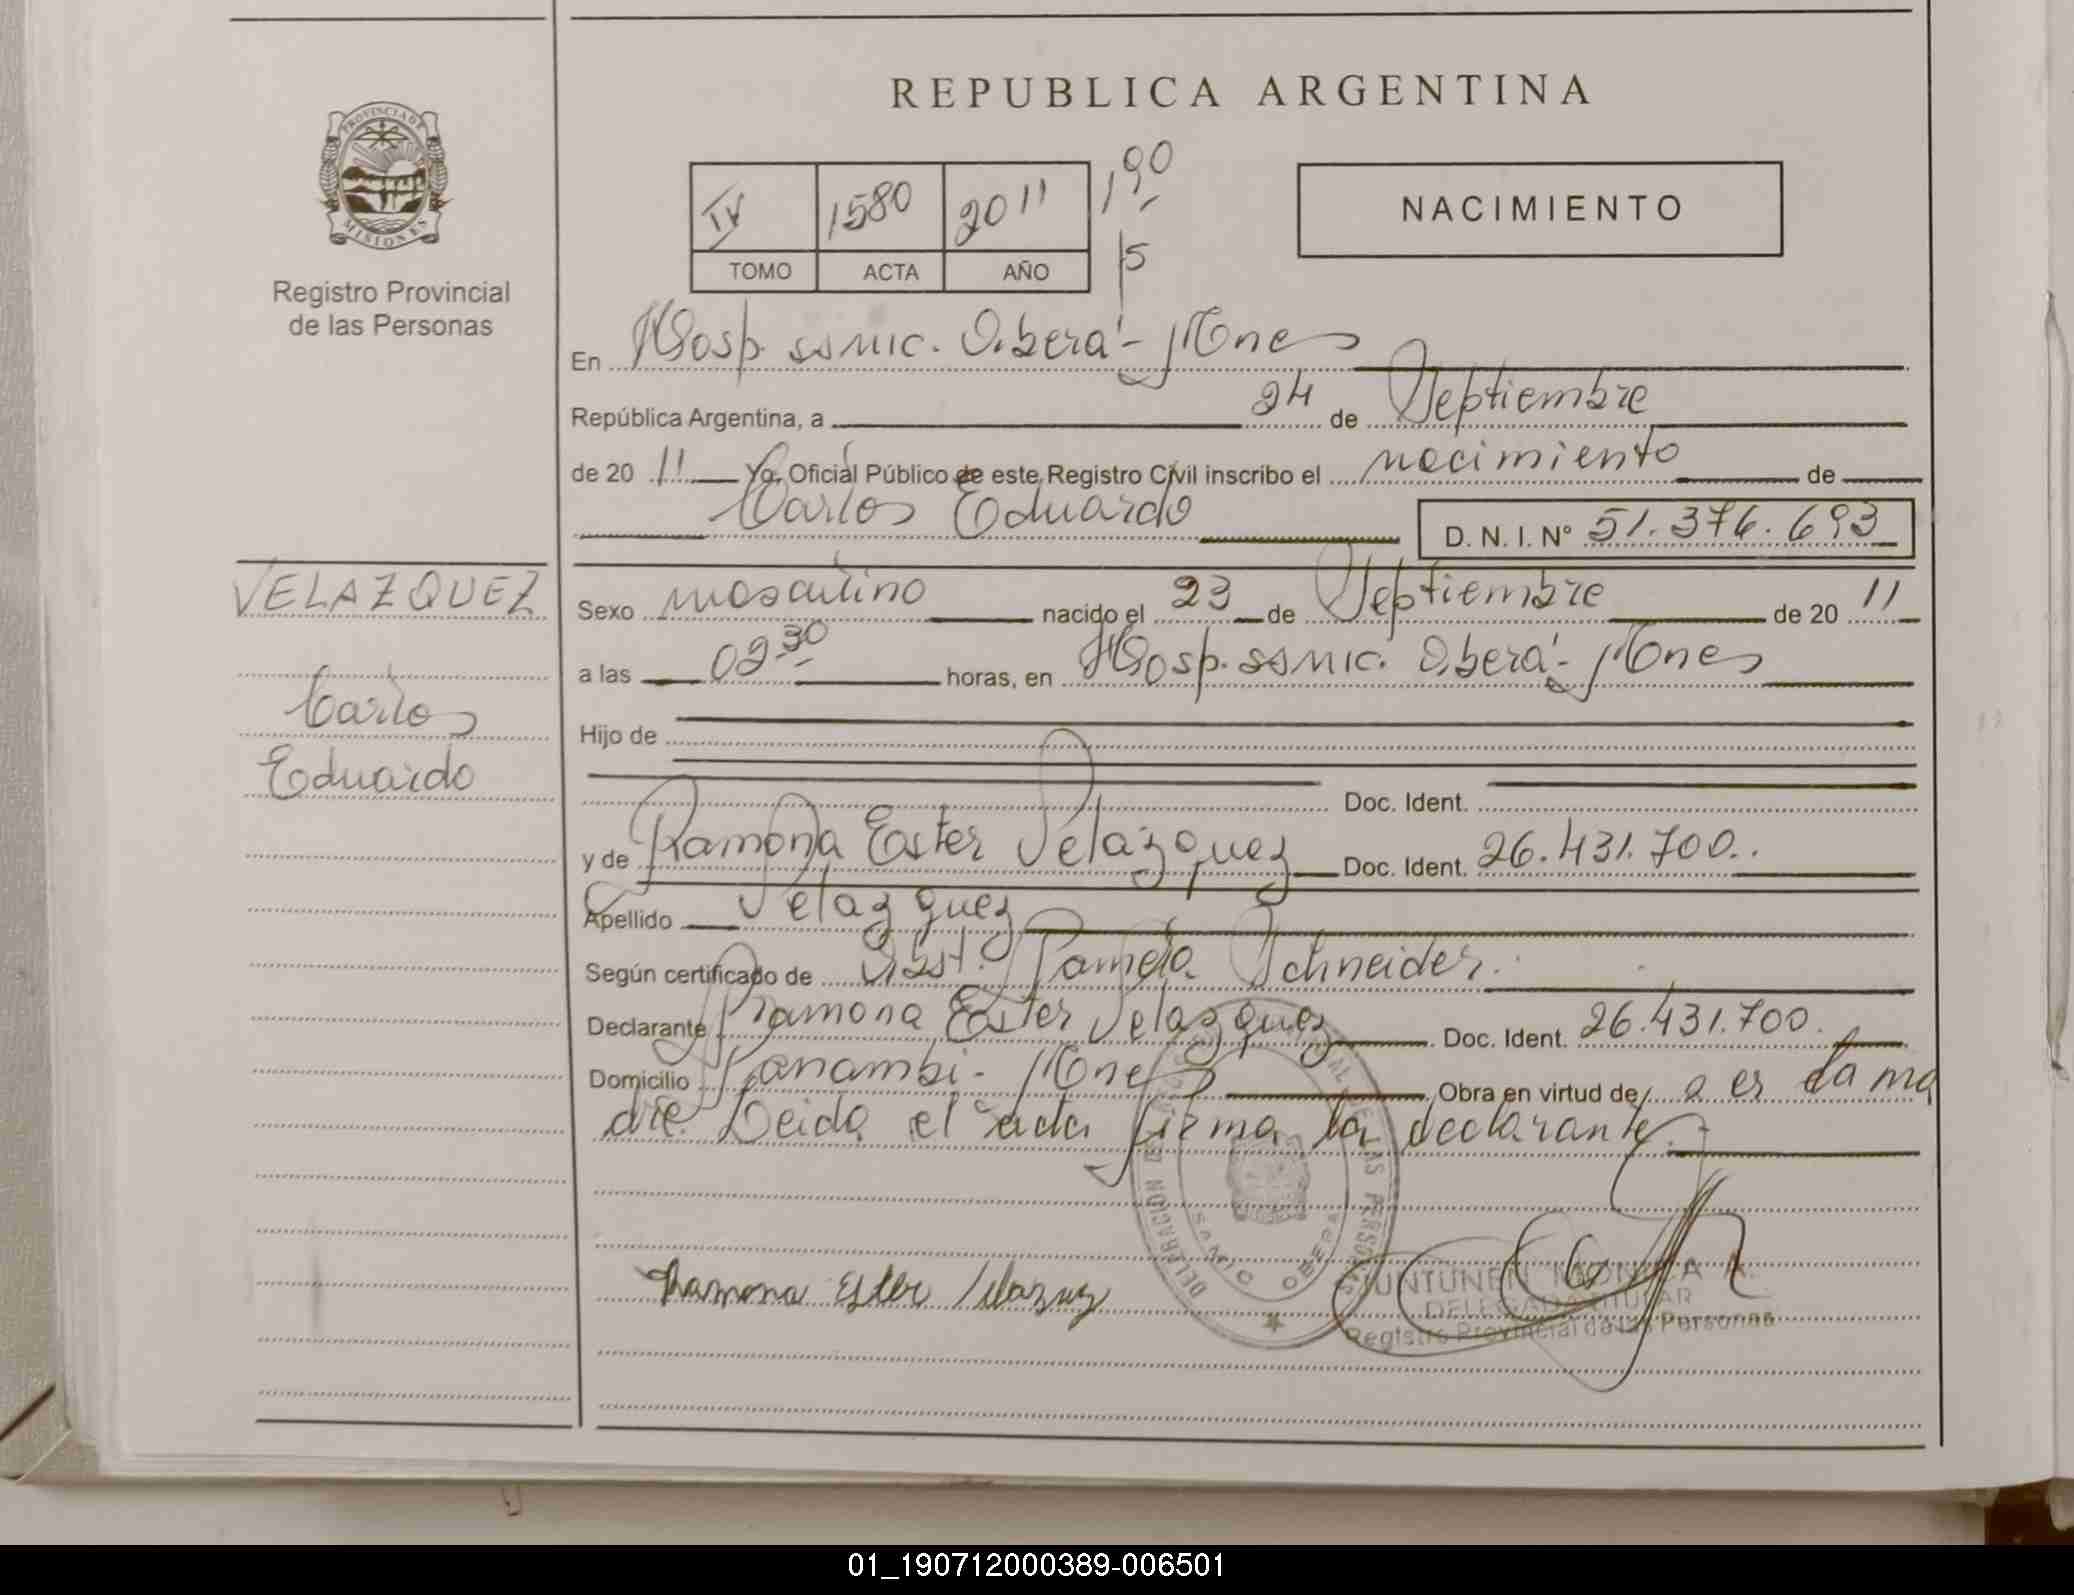 REPUBLICA ARGENTINA
PROVINCIA DE
MISIONES
Registro Provincial
de las Personas
IV 1580 2011 190
TOMO ACTA AÑO 15
NACIMIENTO
En Hosp. ssmic. Oberá - Mnes
República Argentina, a 24 de Septiembre
de 20 11 Yo, Oficial Público de este Registro Civil inscribo el nacimiento de
Carlos Eduardo D. N. I. N° 51.376.693
VELAZQUEZ
Carlos
Eduardo
Sexo masculino nacido el 23 de Septiembre de 20 11
a las 02 30 horas, en Hosp. ssmic. Oberá - Mnes
Hijo de
Doc. Ident.
y de Ramona Ester Velázquez Doc. Ident. 26.431.700.
Apellido Velazquez
Según certificado de Obst. Pamela Schneider.
Declarante Ramona Ester Velazquez Doc. Ident. 26.431.700.
Domicilio Panambi - Mnes Obra en virtud de s er la ma
dre. Leida el acta firma la declarante.
Ramona Ester
DE LAS PERSONAS
OBERA
MONICA A.
DELEGADA TITULAR
Registro Provincial de las Personas
01_190712000389-006501